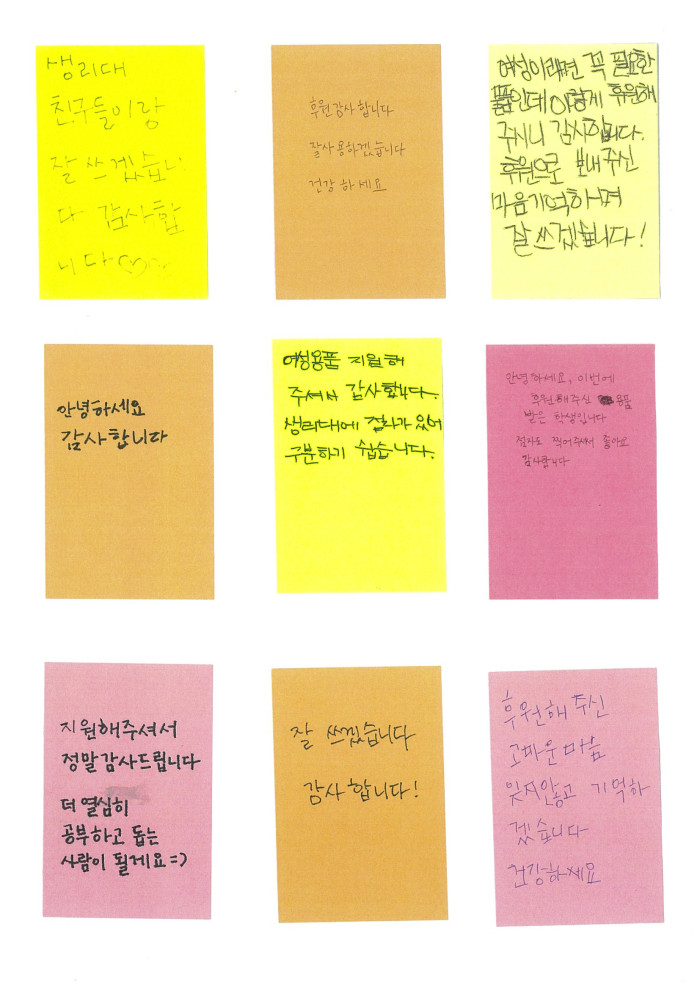 생리대
친구들이랑
잘 쓰겠습니
다 감사합
니다♡♡
후원감사합니다
잘사용하겠습니다
건강하세요
여성이라면 꼭 필요한
품인데 이렇게 후원해
주시니 감사합니다.
후원으로 보내주신
마음기억하며
잘 쓰겠습니다!
안녕하세요
감사합니다
여성용품 지원해
주셔서 감사합니다.
생리대에 점자가 있어
구분하기 쉽습니다.
안녕하세요, 이번에
후원해주신 용품
받은 학생입니다
점자도 찍어주셔서 좋아요
감사합니다
지원해주셔서
정말감사드립니다
더 열심히
공부하고 돕는
사람이 될게요=)
잘 쓰겠습니다
감사합니다!
후원해 주신
고마운마음
잊지않고 기억하
겠습니다
건강하세요